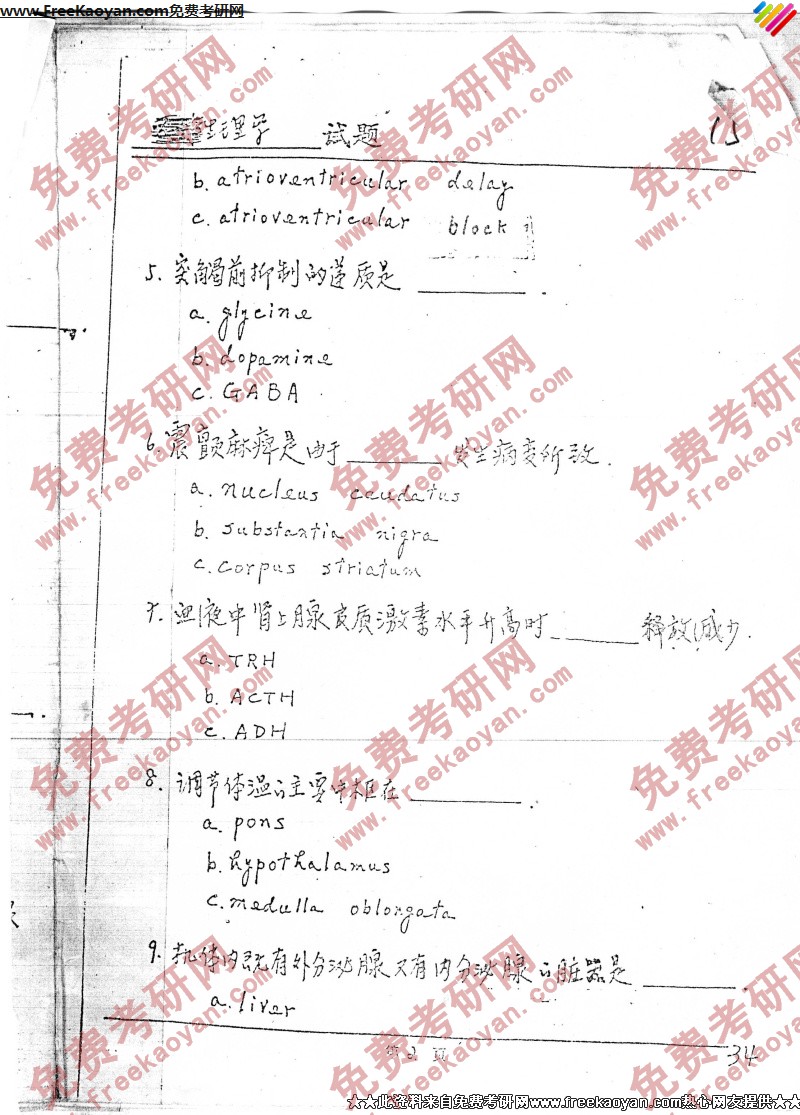 www.FreeKaoyan.com免费考研网
生理学 试题
15
b. atrioventricular delay
c. atrioventricular block
5. 突触前抑制的递质是 ________.
a. glycine
b. dopamine
c. GABA
6. 震颤麻痹是由于 ________ 发生病变所致.
a. nucleus caudatus
b. substantia nigra
c. corpus striatum
7. 血液中肾上腺皮质激素水平升高时 ________ 释放减少.
a. TRH
b. ACTH
c. ADH
8. 调节体温的主要中枢在 ________.
a. pons
b. hypothalamus
c. medulla oblongata
9. 机体内既有外分泌腺又有内分泌腺的脏器是 ________.
a. liver
第 2 页
34
★★此资料来自免费考研网www.freekaoyan.com热心网友提供★★
免费考研网
www.freekaoyan.com